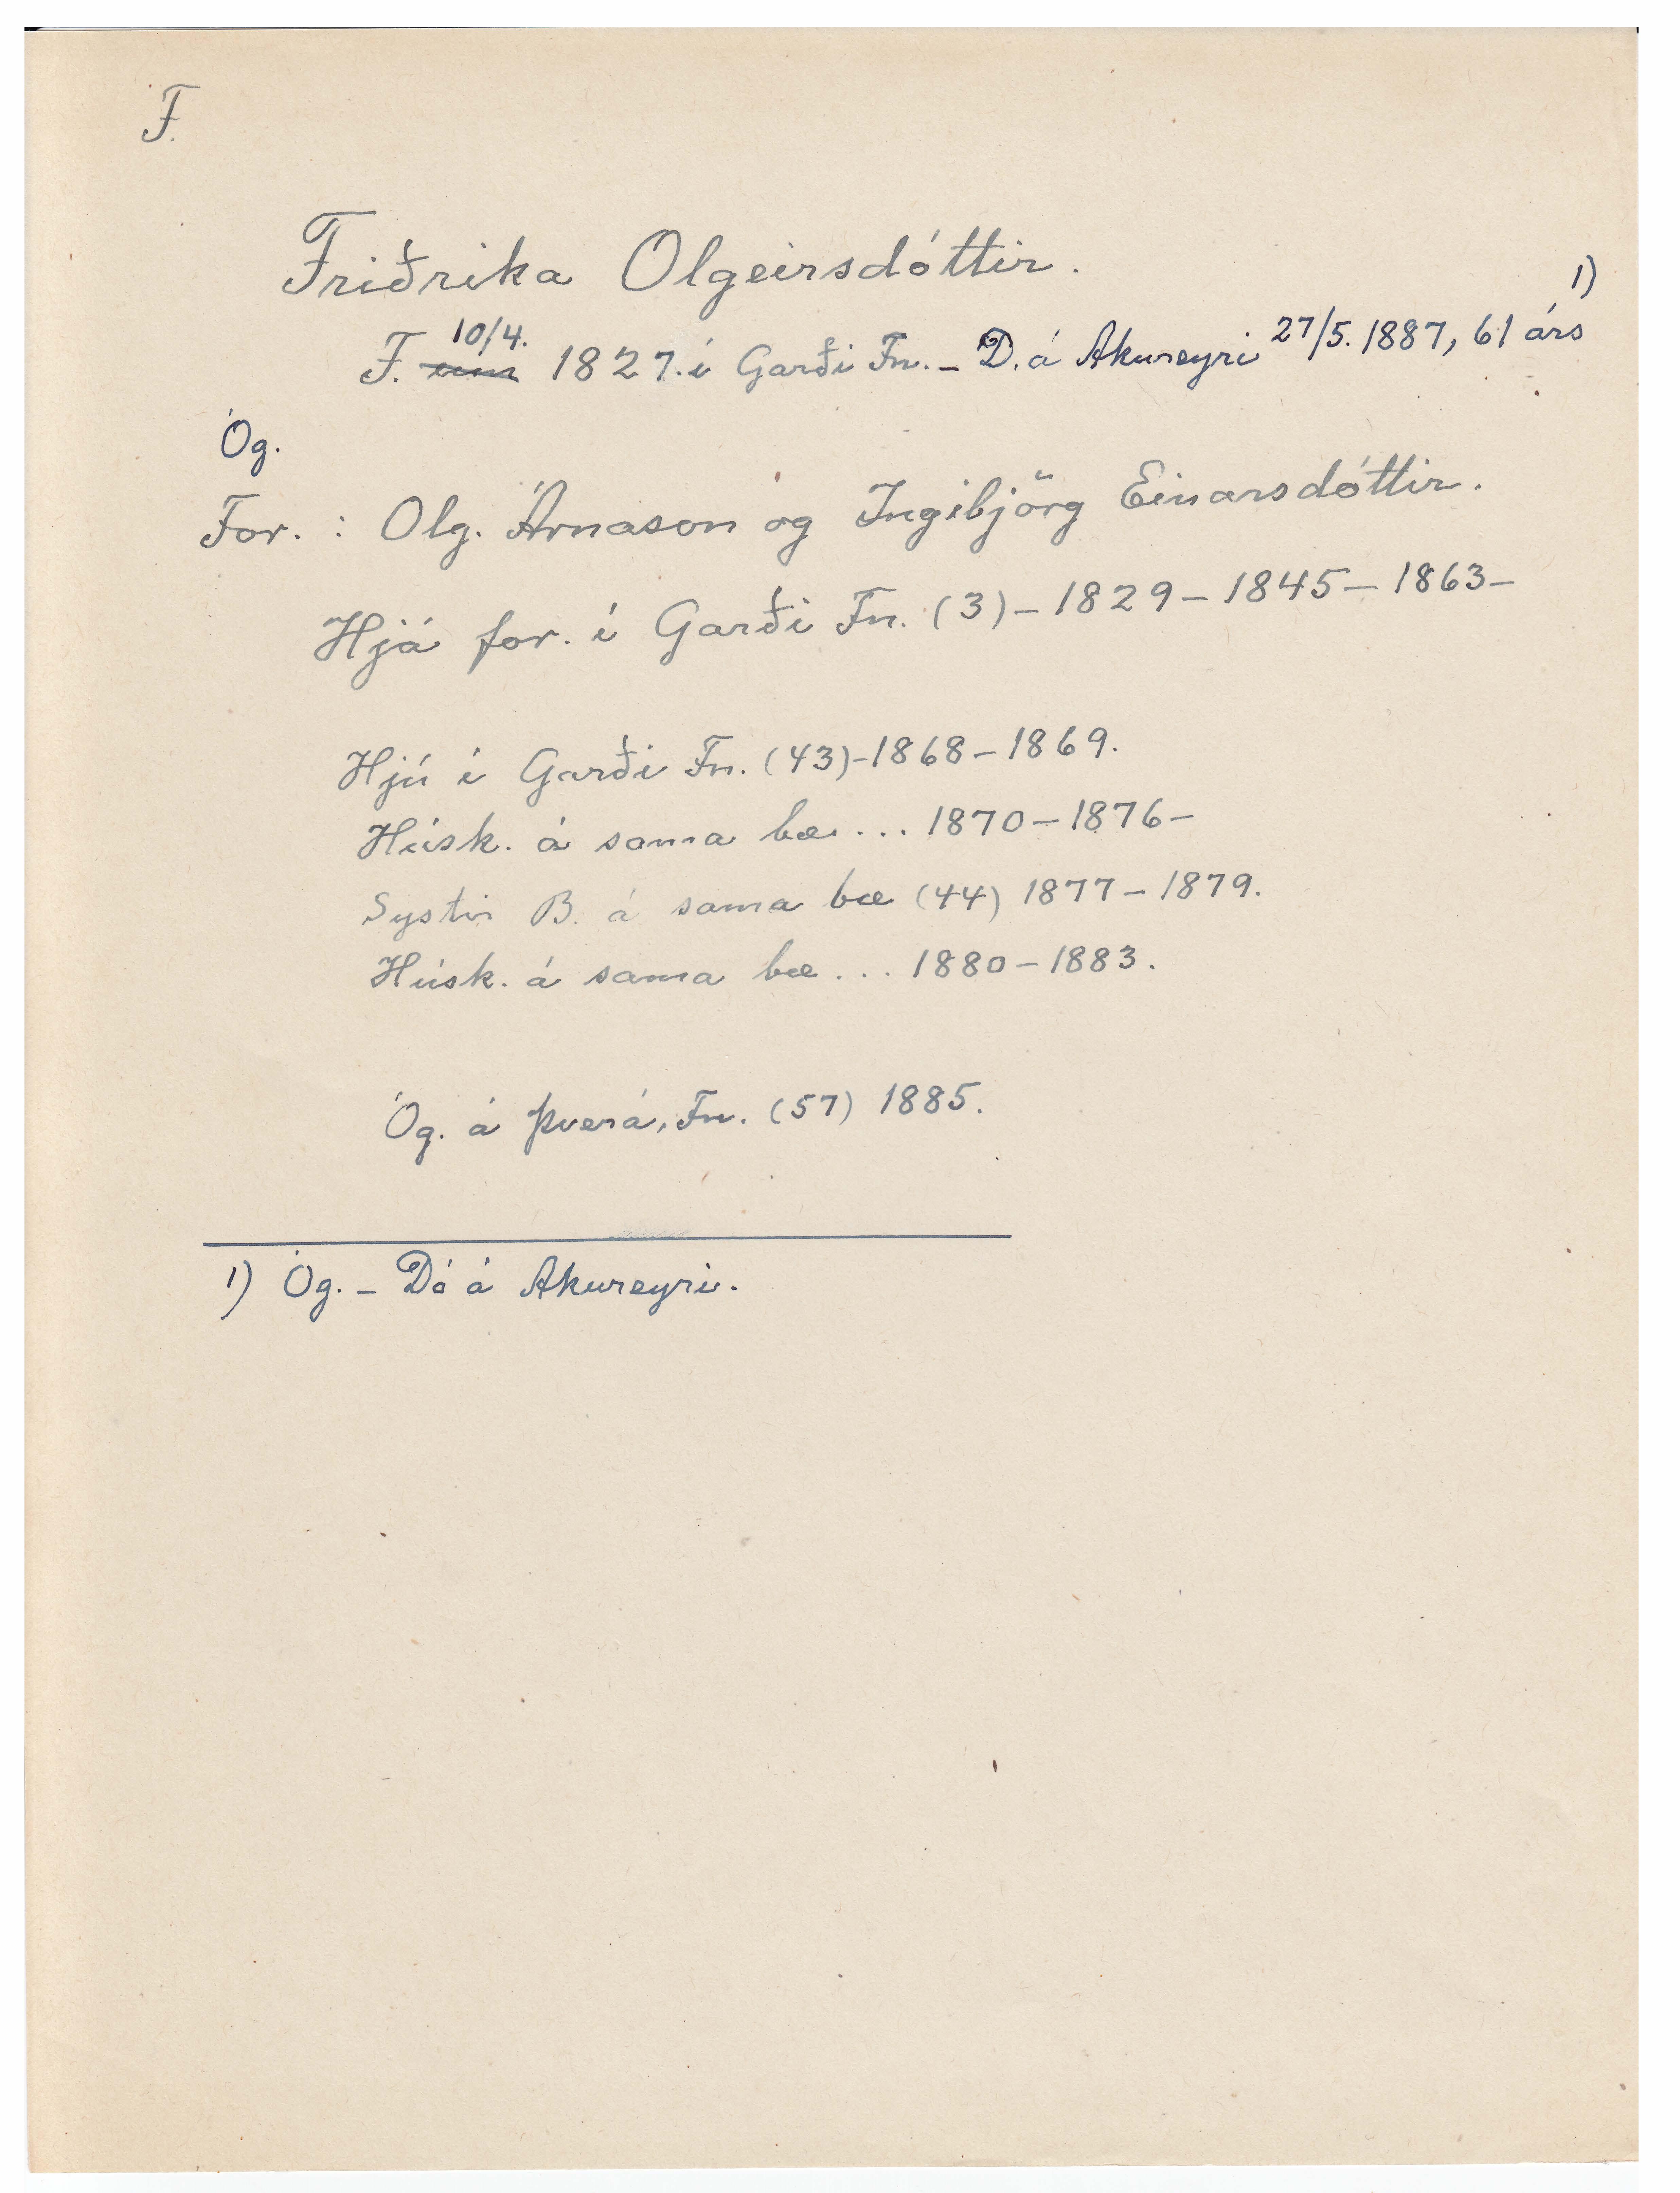 F.
Friðrika Olgeirsdóttir.
1)
10/4.
F. um 1827. í Garði Fn. – D. á Akureyri 27/5. 1887, 61 árs
Óg.
For. : Olg. Árnason og Ingibjörg Einarsdóttir.
Hjá for. í Garði Fn. (3) – 1829 – 1845 – 1863 –
Hjú í Garði Fn. (43) – 1868 – 1869.
Húsk. á sama bæ ... 1870 – 1876 –
Systir B. á sama bæ (44) 1877 – 1879.
Húsk. á sama bæ ... 1880 – 1883.
Óg. á Þverá, Fn. (57) 1885.
1) Óg. – Dó á Akureyri.